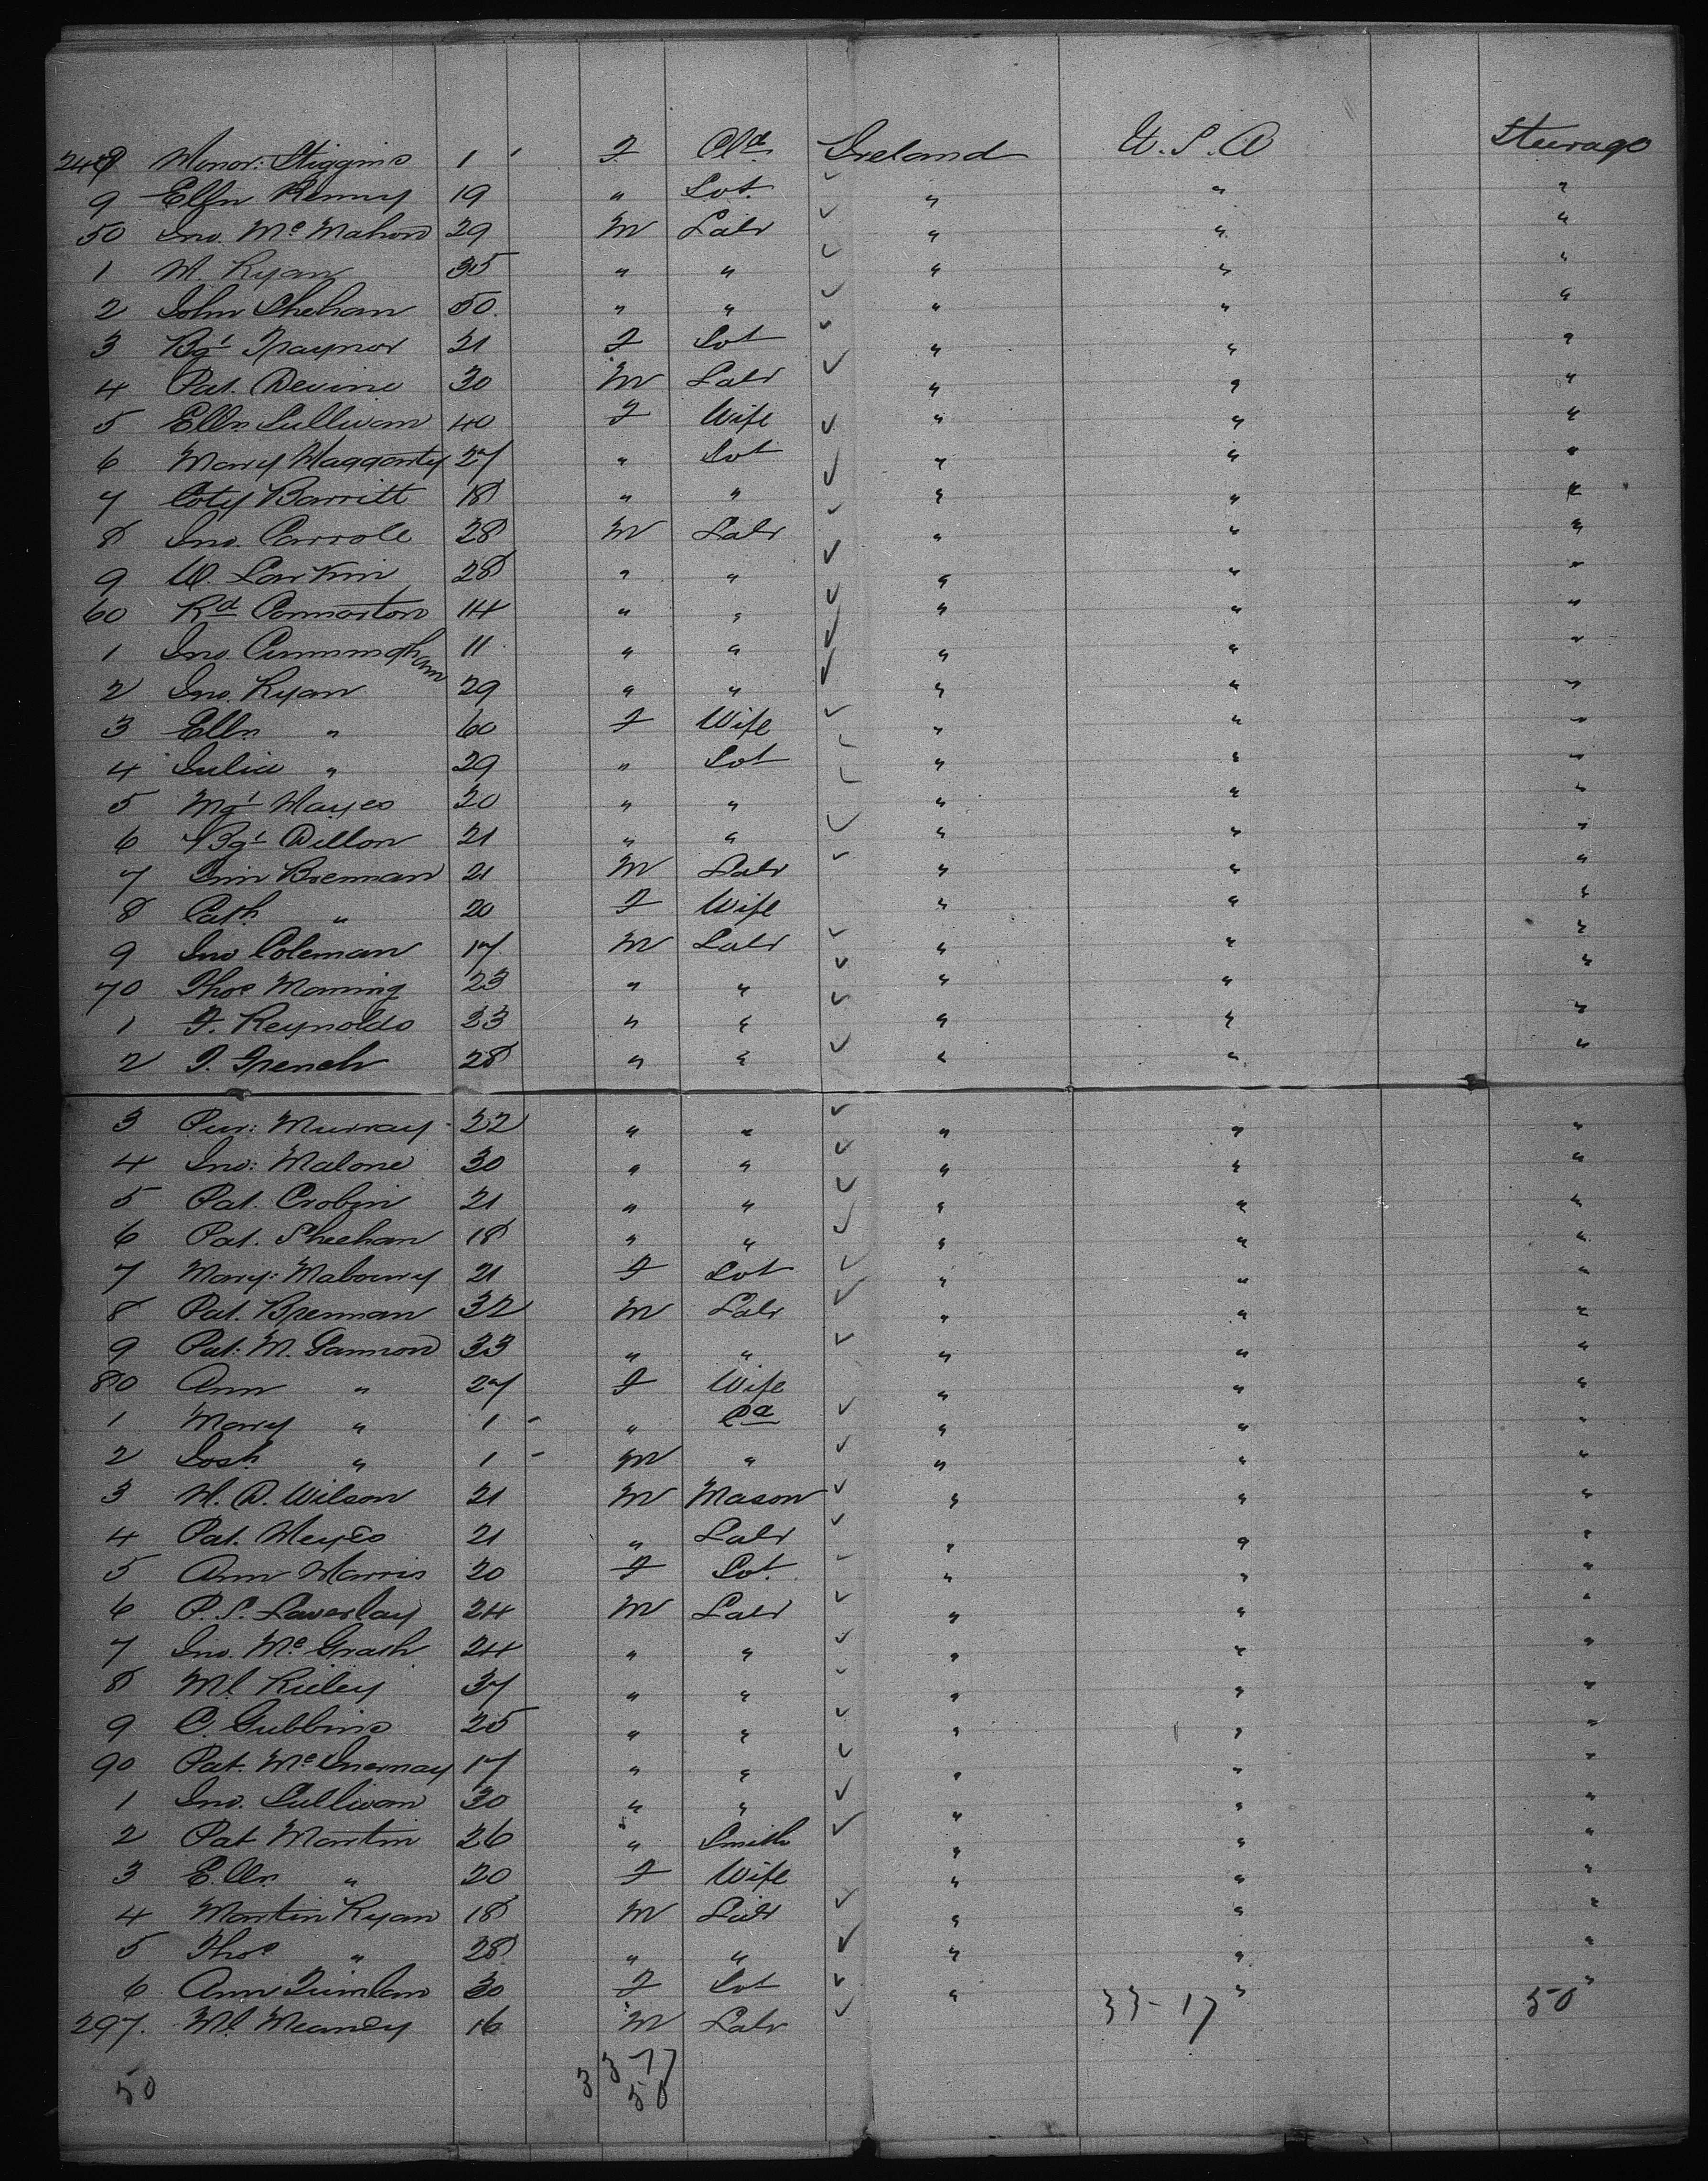 248 Honor: Higgins 1 ' F Chd Ireland U.S.A Steerage
9 Elln Kenny 19 " Spt. ✓ " " "
50 Jno. Mc Mahon 29 M Labr ✓ " " "
1 M. Ryan 35 " " ✓ " " "
2 John Shehan 50. " " ✓ " " "
3 Bgt Traynor 21 F Spt ✓ " " "
4 Pat. Devine 30 M Labr ✓ " " "
5 Elln Sullivan 40 F Wife ✓ " " "
6 Mary Haggarty 27 " Spt ✓ " " "
7 Barritt 18 " " ✓ " " "
8 Jno. Carroll 28 M Labr ✓ " " "
9 W. Larkin 28 " " ✓ " " "
60 Rd 14 " " ✓ " " "
1 Jno Cunningham 11 " " ✓ " " "
2 Jno. Ryan 29 " " ✓ " " "
3 Elln " 60 F Wife ✓ " " "
4 Julia " 29 " Spt ✓ " " "
5 Mgt Hayes 20 " " ✓ " " "
6 Bgt Dillon 21 " " ✓ " " "
7 Jim Brennan 21 M Labr ✓ " " "
8 Cath " 20 F Wife " " "
9 Jno Coleman 17 M Labr ✓ " " "
70 Thos Manning 23 " " ✓ " " "
1 F. Reynolds 23 " " ✓ " " "
2 French 28 " " ✓ " " "
3 Murray 22 " " ✓ " " "
4 Jno: Malone 30 " " ✓ " " "
5 Pat. Crobin 21 " " ✓ " " "
6 Pat. Sheehan 18 " " ✓ " " "
7 Mary: 21 F Spt ✓ " " "
8 Pat. Brennan 32 M Labr ✓ " " "
9 Pat. M. Gannon 33 " " ✓ " " "
80 Ann " 27 F Wife " " "
1 Mary " 1 - " Cd ✓ " " "
2 Josh " 1 - M " ✓ " " "
3 H. D. Wilson 21 M Mason ✓ " " "
4 Pat. Heyes 21 " Labr ✓ " " "
5 Ann Harris 20 F Spt. ✓ " " "
6 P. S. 24 M Labr ✓ " " "
7 Jno. Mc Grath 24 " " ✓ " " "
8 Ml. Rieley 37 " " ✓ " " "
9 C. Gubbins 25 " " ✓ " " "
90 Pat. Mc Inernay 17 " " ✓ " " "
1 Jno. Sullivan 30 " " ✓ " " "
2 Pat Martin 26 " Smith ✓ " " "
3 Elln " 20 F Wife " " "
4 Martin Ryan 18 M Labr ✓ " " "
5 Thos " 28 " " ✓ " " "
6 Ann Quinlan 30 F Spt ✓ " " "
297. Ml. Meaney 16 M Labr ✓ 33-17 50
50 33 17
50